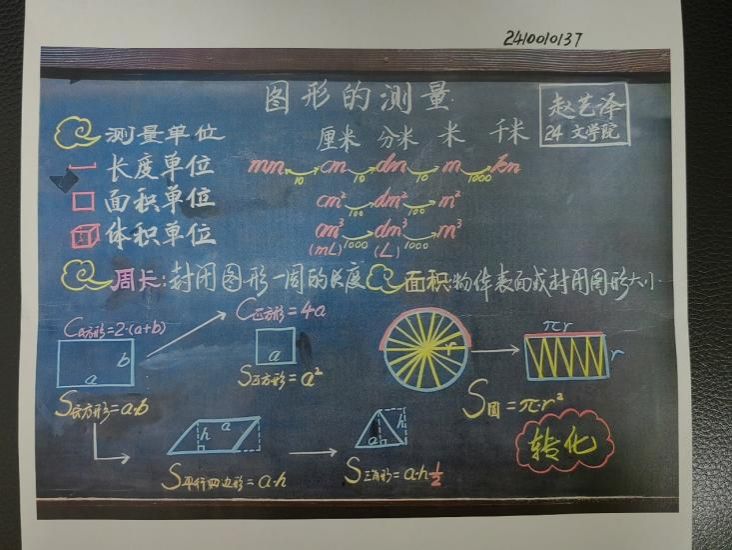 2410010137
图形的测量
赵艺泽
24 文学院
测量单位
厘米 分米 米 千米
长度单位 mm 10 cm 10 dm 10 m 1000 km
面积单位 cm² 100 dm² 100 m²
体积单位 cm³ 1000 dm³ 1000 m³
(mL) (L)
周长:封闭图形一周的长度
面积:物体表面或封闭图形大小
C长方形=2·(a+b)
C正方形=4a
πr
b
a
a
r
r
S正方形=a²
S长方形=a·b
S圆=π·r²
h
a
h
a
转化
S平行四边形=a·h
S三角形=a·h½